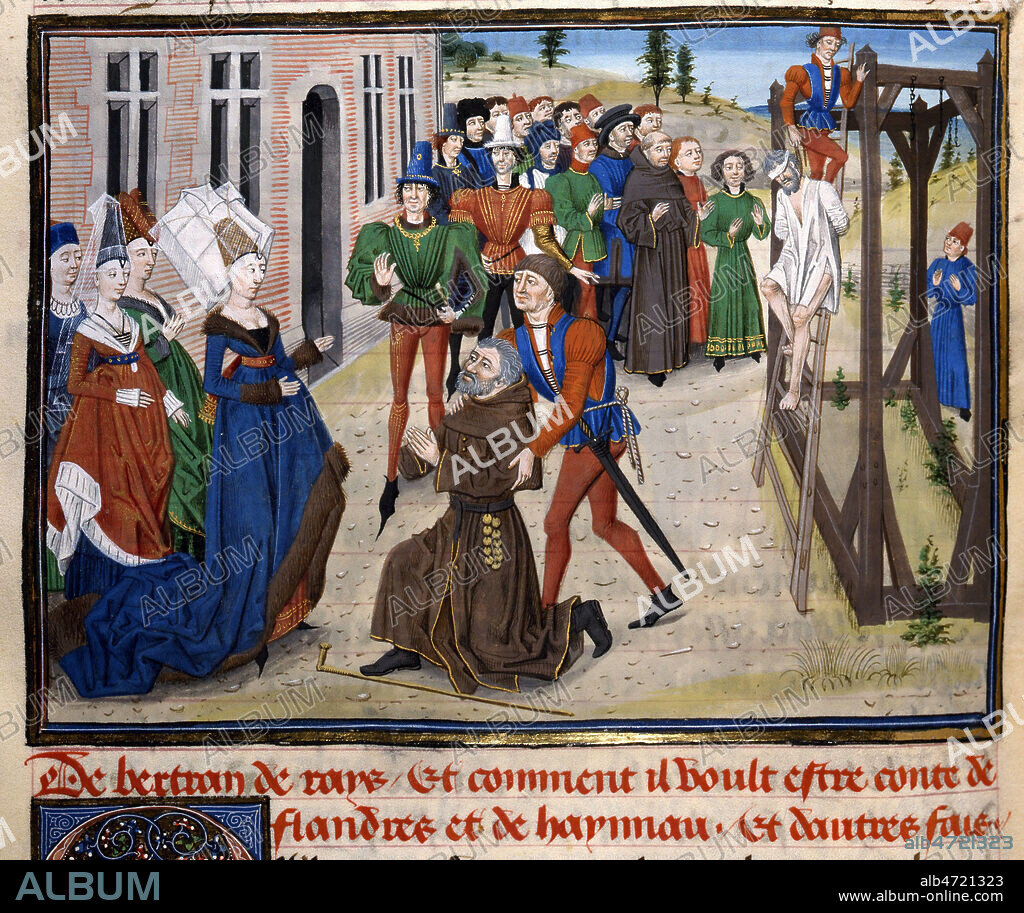 De bertran de rays / Et comment il voult estre conte de
flandres et de haynnau . Et dautres fais .
alb4721323
ALBUM
alb4721323
www.albumimages.com